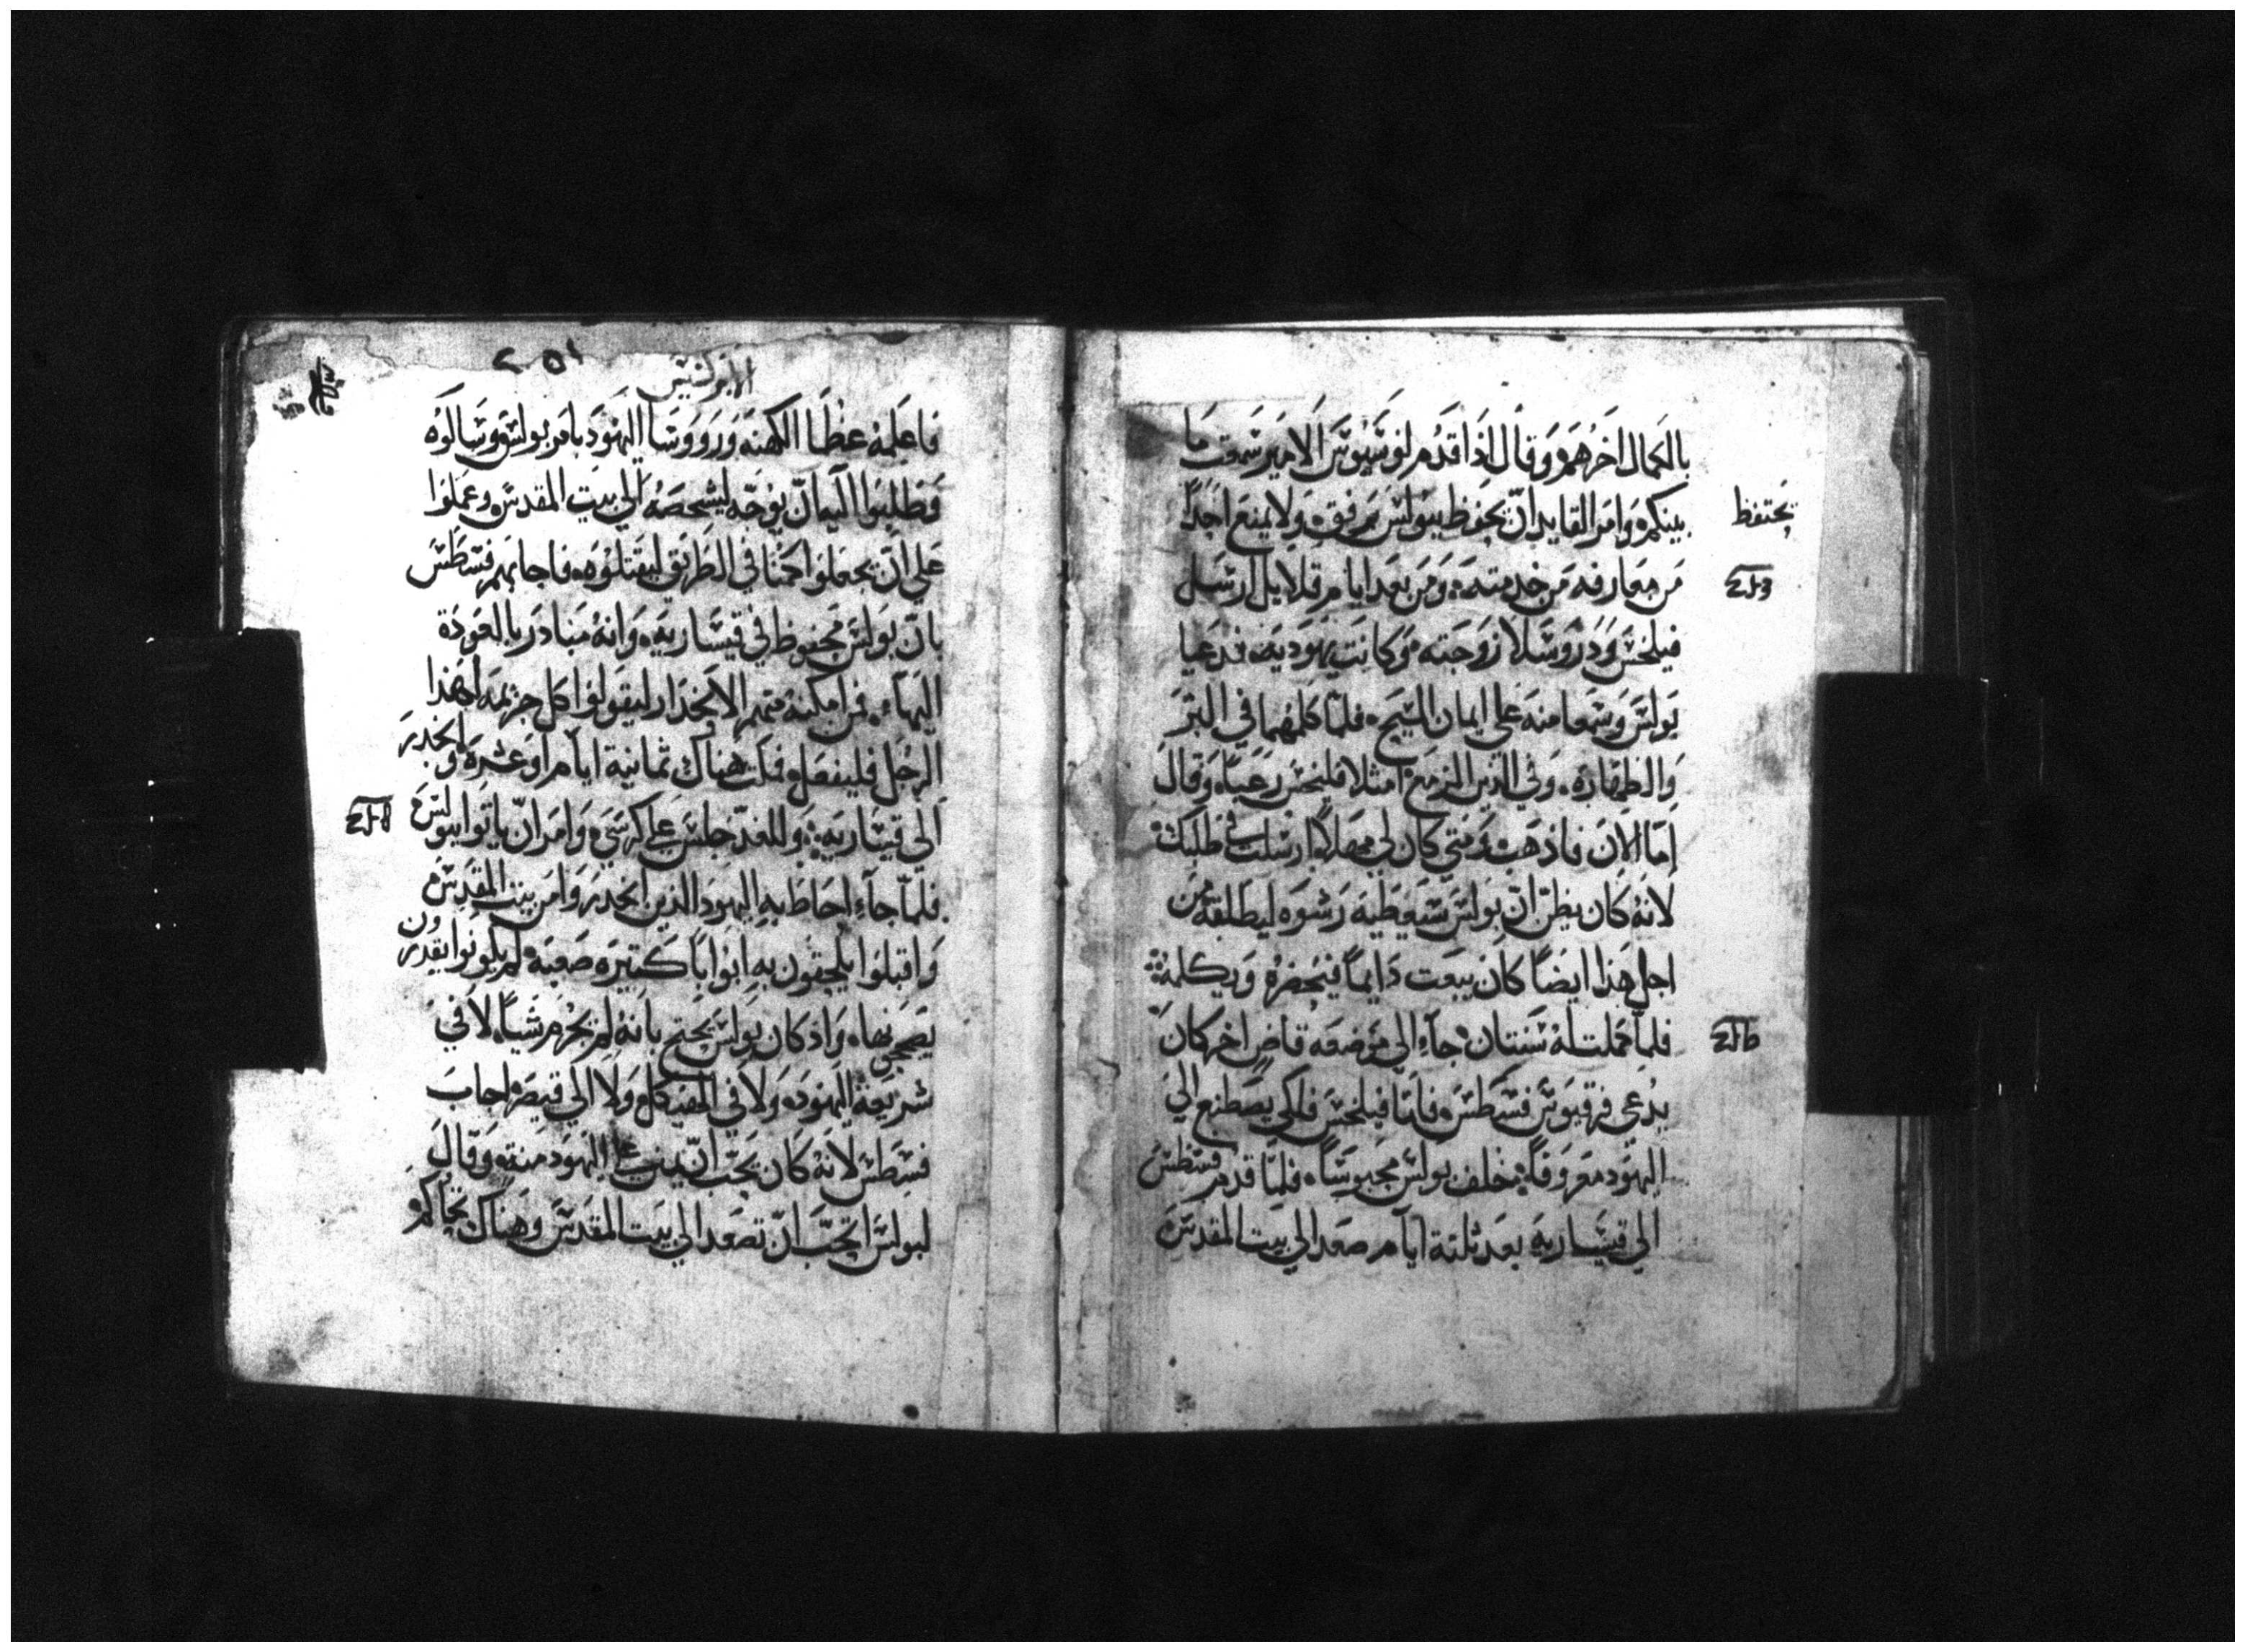 بالكمال اخرهم وقال اذا قدم لوسيوس الامير سمعت ما
بينكم وامر القايد ان يحفظ ببولس برفق ولا يمنع احدًا
يحتفظ
من معارفه من خدمته ومن بعد ايام قلايل ارسل
فيلخس ودروسلا زوجته وكانت يهودية فدعيا
بولس وسمعا منه على ايمان المسيح فلما كلمهما في البر
والطهارة وفي الدين المزمع امتلا فلخس رعبًا وقال
اما الان فاذهب ومتى كان لي مهلاً ارسلت في طلبك
لانه كان يظن ان بولس سيعطيه رشوه ليطلقه من
اجل هذا ايضًا كان يبعت دايمًا فيحضره ويكلمه
فلما كملت له سنتان جاء الى موضعه قاض اخر كان
يدعى فرقيوس فسطس فاما فيلخس فلكي يصطنع الى
اليهود معروفًا خلف بولس محبوسًا فلما قدم فسطس
الى قيساريه بعد ثلثة ايام صعد الى بيت المقدس
الابركسيس
فاعلمه عظما الكهنه وروسا اليهود بامر بولس وسالوه
وطلبوا اليه ان يوجه ليشخصه الى بيت المقدس وعملوا
على ان يجعلوا كمنا في الطريق ليقتلوه فاجابهم فسطس
بان بولس محفوظ في قيساريه وانه مبادر بالعودة
اليها فمن امكنه منهم الانحدار ليقولوا كل جريمه لهذا
الرجل فليفعل فمكث هناك ثمانية ايام او عشرة وانحدر
الى قيساريه وللغد جلس على كرسيه وامر ان ياتوا ببولس
فلما جاء احاط به اليهود الذين انحدروا من بيت المقدس
واقبلوا يلحقون به ابوابا كثيره صعبة لم يكونوا يقدرون
يصححونها واذ كان بولس يحتج بانه لم يجرم شيًا لا في
شريعة اليهود ولا في الهيكل ولا الى قيصر اجاب
فسطس لانه كان يحب ان يمن على اليهود منه وقال
لبولس اتحب ان تصعد الى بيت المقدس وهناك تحاكم